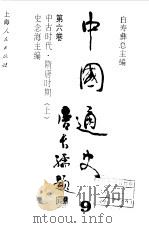 白寿彝总主编
中國通史
9
第六卷
中古时代·隋唐时期（上）
史念海主编
上海人民出版社